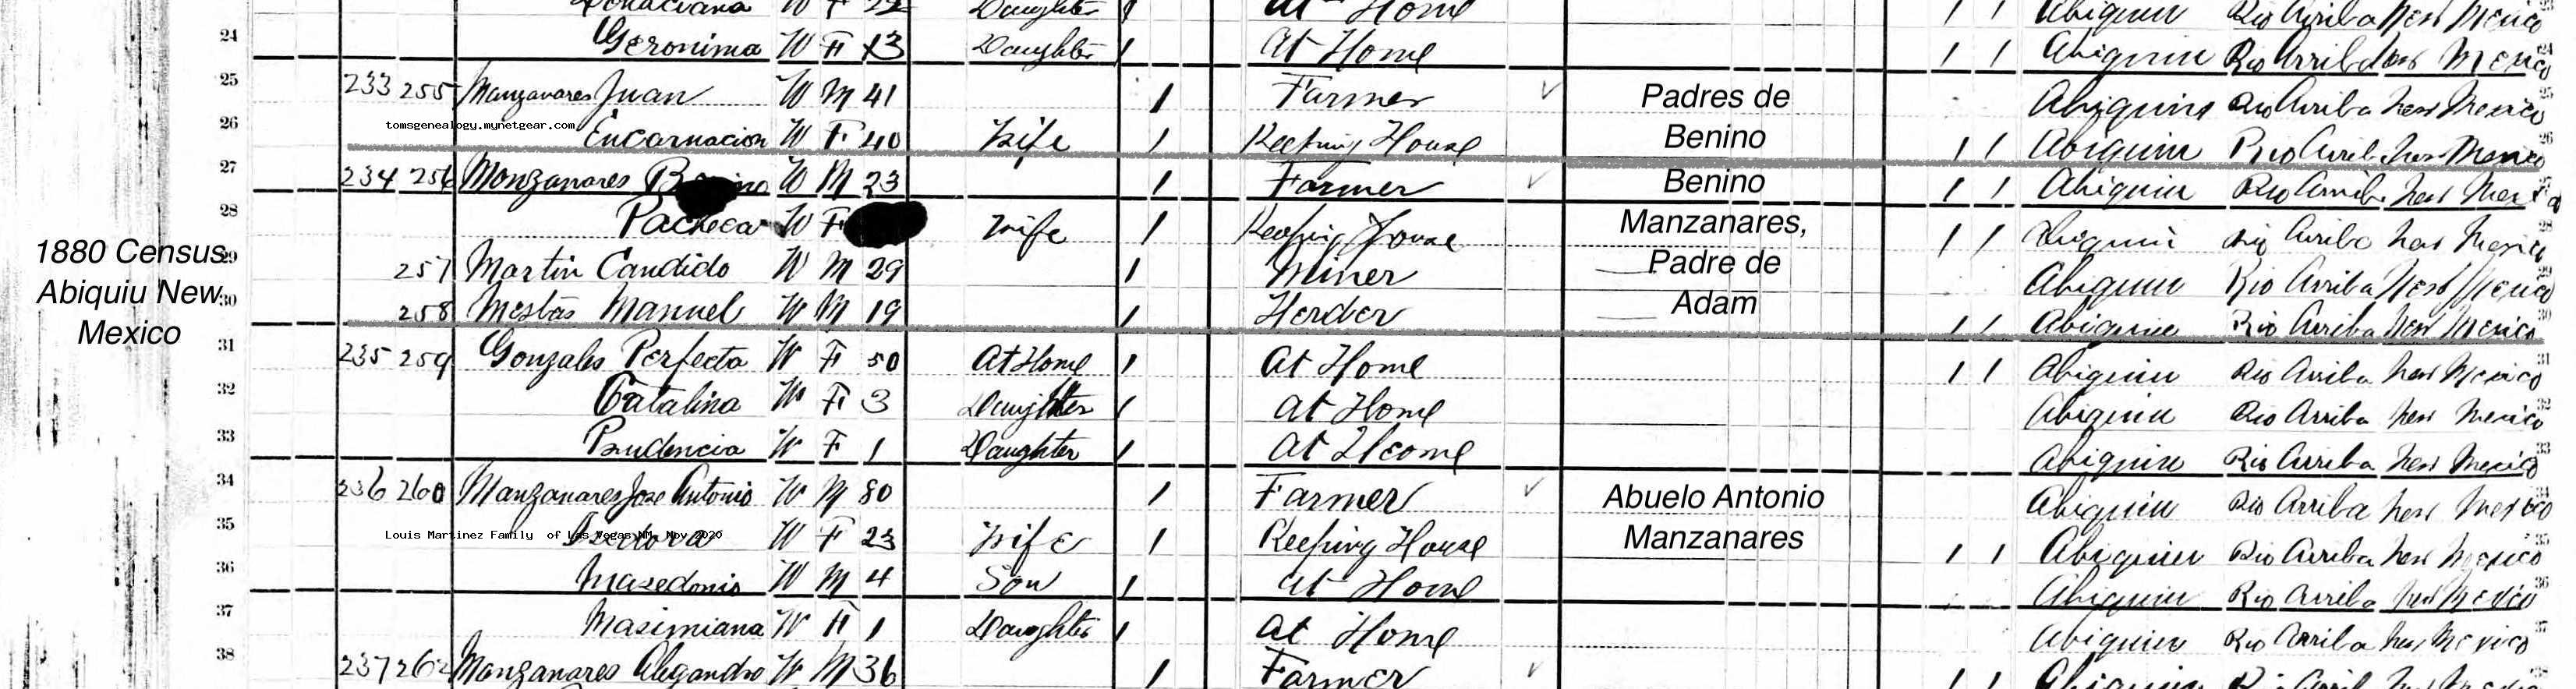 W F 22 Daughter 1 At Home 1 1 Abiquiu Rio Arriba New Mexico
24 Geronima W F 13 Daughter 1 At Home 1 1 Abiquiu Rio Arriba New Mexico 24
25 233 255 Manzanares Juan W M 41 1 Farmer ✓ Padres de Abiquiu Rio Arriba New Mexico 25
tomsgenealogy.mynetgear.com
26 Encarnacion W F 40 Wife 1 Keeping House Benino 1 1 Abiquiu Rio Arriba New Mexico 26
27 234 256 Manzanares W M 23 1 Farmer ✓ Benino 1 1 Abiquiu Rio Arriba New Mexico
28 Pacheca W F Wife 1 Keeping House Manzanares, 1 1 Abiquiu Rio Arriba New Mexico 28
1880 Census
29 257 Martin Candido W M 29 1 Miner Padre de Abiquiu Rio Arriba New Mexico 29
Abiquiu New
30 258 Mestas Manuel W M 19 1 Herder Adam 1 1 Abiquiu Rio Arriba New Mexico 30
Mexico
31 235 259 Gonzales Perfecta W F 50 At Home 1 At Home 1 1 Abiquiu Rio Arriba New Mexico 31
32 Catalina W F 3 Daughter 1 At Home Abiquiu Rio Arriba New Mexico 32
33 Prudencia W F 1 Daughter 1 At Home Abiquiu Rio Arriba New Mexico 33
34 236 260 Manzanares Jose Antonio W M 80 1 Farmer ✓ Abuelo Antonio Abiquiu Rio Arriba New Mexico 34
Louis Martinez Family of Las Vegas NM, Nov 2020
35 W F 23 Wife 1 Keeping House Manzanares 1 1 Abiquiu Rio Arriba New Mexico 35
36 Masedonio W M 4 Son 1 At Home Abiquiu Rio Arriba New Mexico 36
37 Masimiana W F 1 Daughter 1 At Home Abiquiu Rio Arriba New Mexico 37
38 237 262 Manzanares Alegandro W M 36 1 Farmer ✓ 1 1 Abiquiu